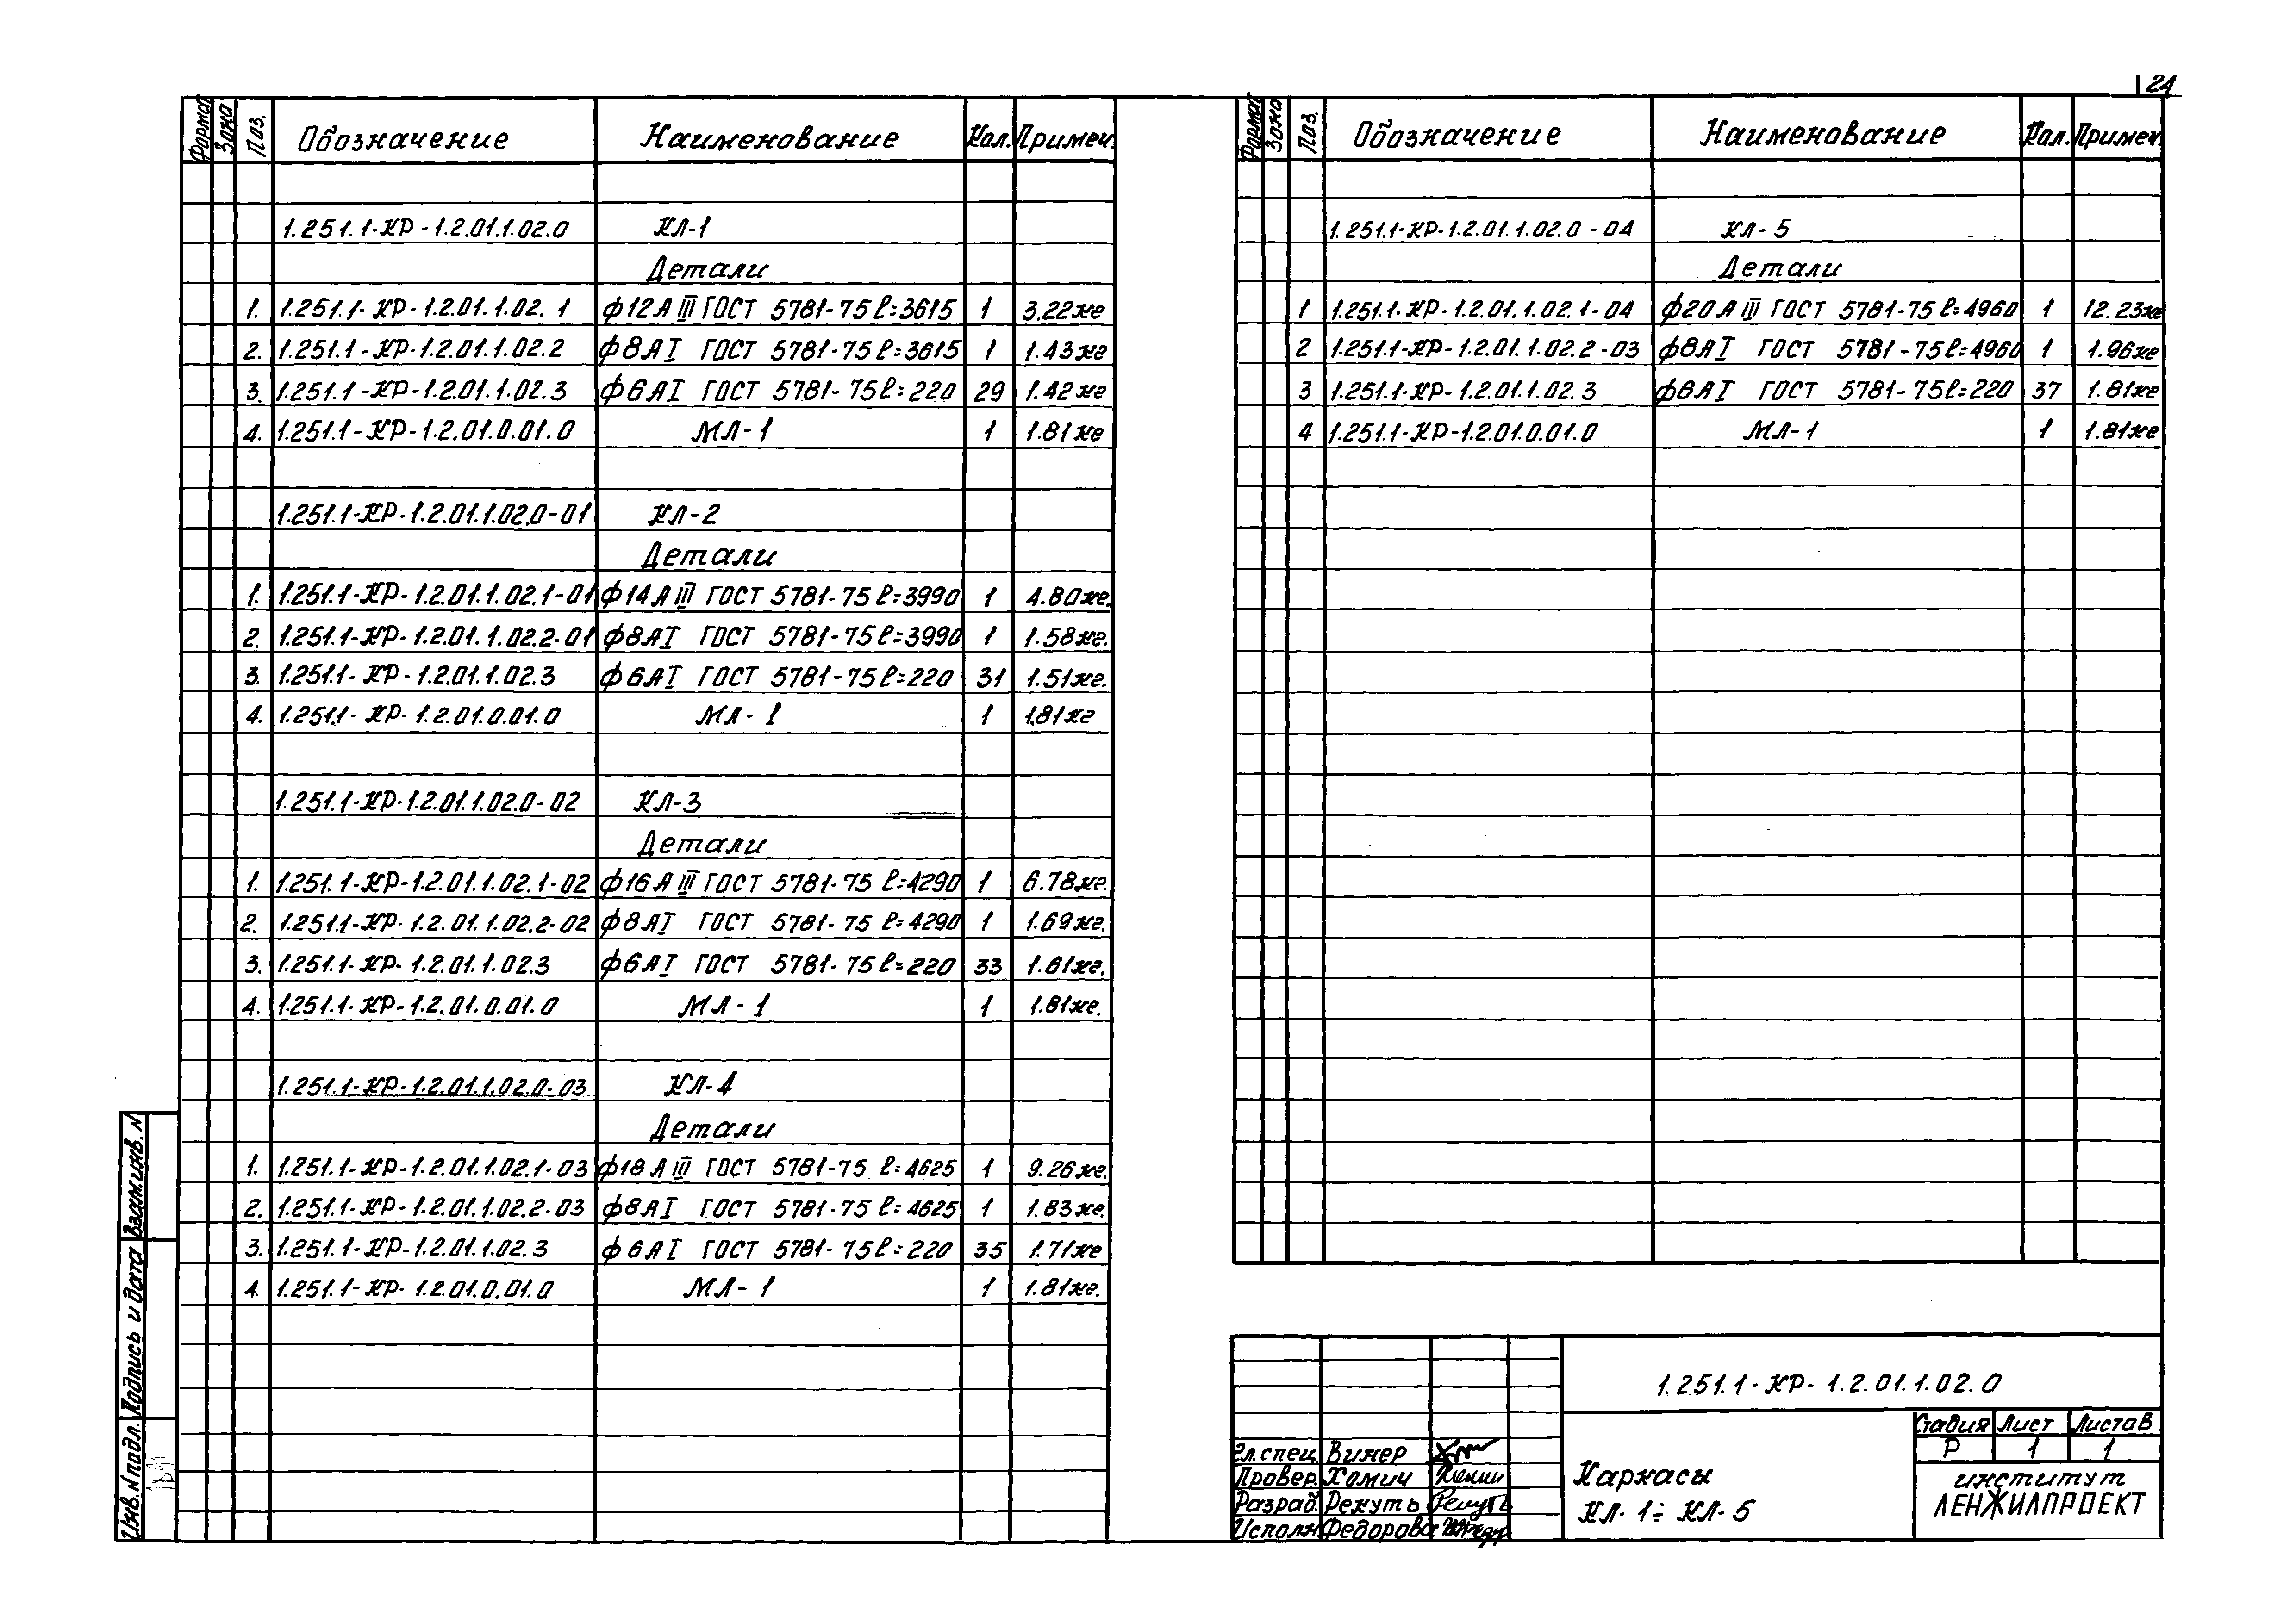 24
Формат Зона Поз. Обозначение Наименование Кол. Примеч.
1.251.1-КР-1.2.01.1.02.0 КЛ-1
Детали
1. 1.251.1-КР-1.2.01.1.02.1 ф12АIII ГОСТ 5781-75 ℓ=3615 1 3.22кг
2. 1.251.1-КР-1.2.01.1.02.2 ф8АI ГОСТ 5781-75 ℓ=3615 1 1.43кг
3. 1.251.1-КР-1.2.01.1.02.3 ф6АI ГОСТ 5781-75 ℓ=220 29 1.42кг
4. 1.251.1-КР-1.2.01.0.01.0 МЛ-1 1 1.81кг
1.251.1-КР-1.2.01.1.02.0-01 КЛ-2
Детали
1. 1.251.1-КР-1.2.01.1.02.1-01 ф14АIII ГОСТ 5781-75 ℓ=3990 1 4.80кг.
2. 1.251.1-КР-1.2.01.1.02.2-01 ф8АI ГОСТ 5781-75 ℓ=3990 1 1.58кг.
3. 1.251.1-КР-1.2.01.1.02.3 ф6АI ГОСТ 5781-75 ℓ=220 31 1.51кг.
4. 1.251.1-КР-1.2.01.0.01.0 МЛ-1 1 1.81кг
1.251.1-КР-1.2.01.1.02.0-02 КЛ-3
Детали
1. 1.251.1-КР-1.2.01.1.02.1-02 ф16АIII ГОСТ 5781-75 ℓ=4290 1 6.78кг.
2. 1.251.1-КР-1.2.01.1.02.2-02 ф8АI ГОСТ 5781-75 ℓ=4290 1 1.69кг.
3. 1.251.1-КР-1.2.01.1.02.3 ф6АI ГОСТ 5781-75 ℓ=220 33 1.61кг.
4. 1.251.1-КР-1.2.01.0.01.0 МЛ-1 1 1.81кг.
1.251.1-КР-1.2.01.1.02.0-03 КЛ-4
Детали
1. 1.251.1-КР-1.2.01.1.02.1-03 ф18АIII ГОСТ 5781-75 ℓ=4625 1 9.26кг.
2. 1.251.1-КР-1.2.01.1.02.2-03 ф8АI ГОСТ 5781-75 ℓ=4625 1 1.83кг.
3. 1.251.1-КР-1.2.01.1.02.3 ф6АI ГОСТ 5781-75 ℓ=220 35 1.71кг
4. 1.251.1-КР-1.2.01.0.01.0 МЛ-1 1 1.81кг.
Формат Зона Поз. Обозначение Наименование Кол. Примеч.
1.251.1-КР-1.2.01.1.02.0-04 КЛ-5
Детали
1 1.251.1-КР-1.2.01.1.02.1-04 ф20АIII ГОСТ 5781-75 ℓ=4960 1 12.23кг
2 1.251.1-КР-1.2.01.1.02.2-03 ф8АI ГОСТ 5781-75 ℓ=4960 1 1.96кг
3 1.251.1-КР-1.2.01.1.02.3 ф6АI ГОСТ 5781-75 ℓ=220 37 1.81кг
4 1.251.1-КР-1.2.01.0.01.0 МЛ-1 1 1.81кг
Взам.инв.N
Подпись и дата
Инв.N подл.
1.251.1-КР-1.2.01.1.02.0
Гл.спец. Винер
Провер. Хомич
Разраб. Рекуть
Исполн. Федорова
Каркасы
КЛ-1÷КЛ-5
Стадия Лист Листов
Р 1 1
институт
ЛЕНЖИЛПРОЕКТ